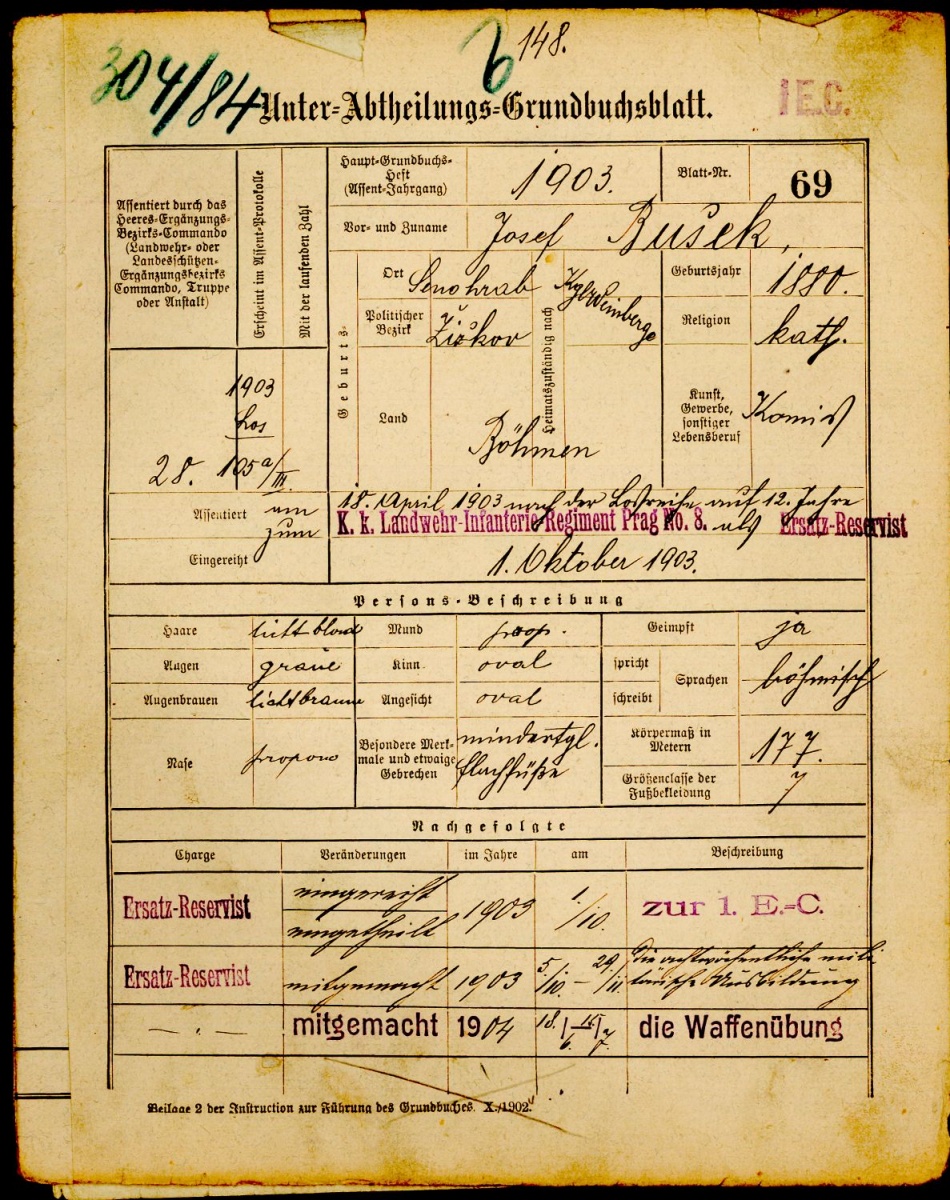 304/84
6 148.
Unter-Abtheilungs-Grundbuchsblatt.
1 E.C.
Assentiert durch das
Heeres-Ergänzungs-
Bezirks-Commando
(Landwehr- oder
Landesschützen-
Ergänzungsbezirks
Commando, Truppe
oder Anstalt)
Erscheint im Assent-Protokolle
Mit der laufenden Zahl
1903
Los
28. 105 a/III.
Haupt-Grundbuchs-
Heft
(Assent-Jahrgang)
1903.
Blatt-Nr.
69
Vor- und Zuname
Josef Bušek,
Geburts-
Ort
Senohrab
Politischer
Bezirk
Žižkov
Land
Böhmen
Heimatszuständig nach
Kgl. Weinberge
Geburtsjahr
1880.
Religion
kath.
Kunst,
Gewerbe,
sonstiger
Lebensberuf
Komis
Assentiert
am
18. April 1903 nach der Losreihe auf 12 Jahre
zum
K. k. Landwehr-Infanterie-Regiment Prag No. 8. als Ersatz-Reservist
Eingereiht
1. Oktober 1903.
Persons-Beschreibung
Haare
licht blond
Mund
prop.
Geimpft
ja
Augen
graue
Kinn
oval
spricht
schreibt
Sprachen
böhmisch
Augenbrauen
lichtbraune
Angesicht
oval
Nase
propor
Besondere Merk-
male und etwaige
Gebrechen
mindertgl.
Flachfüße
Körpermaß in
Metern
177.
Größenclasse der
Fußbekleidung
7
Nachgefolgte
Charge Veränderungen im Jahre am Beschreibung
Ersatz-Reservist eingereiht
eingetheilt 1903 1/10. zur 1. E.-C.
Ersatz-Reservist mitgemacht 1903 5./10 - 29./11. die achtwöchentliche mili-
tärische Ausbildung
— . — mitgemacht 1904 18./6. 15./7. die Waffenübung
Beilage 2 der Instruction zur Führung des Grundbuches. X./1902.